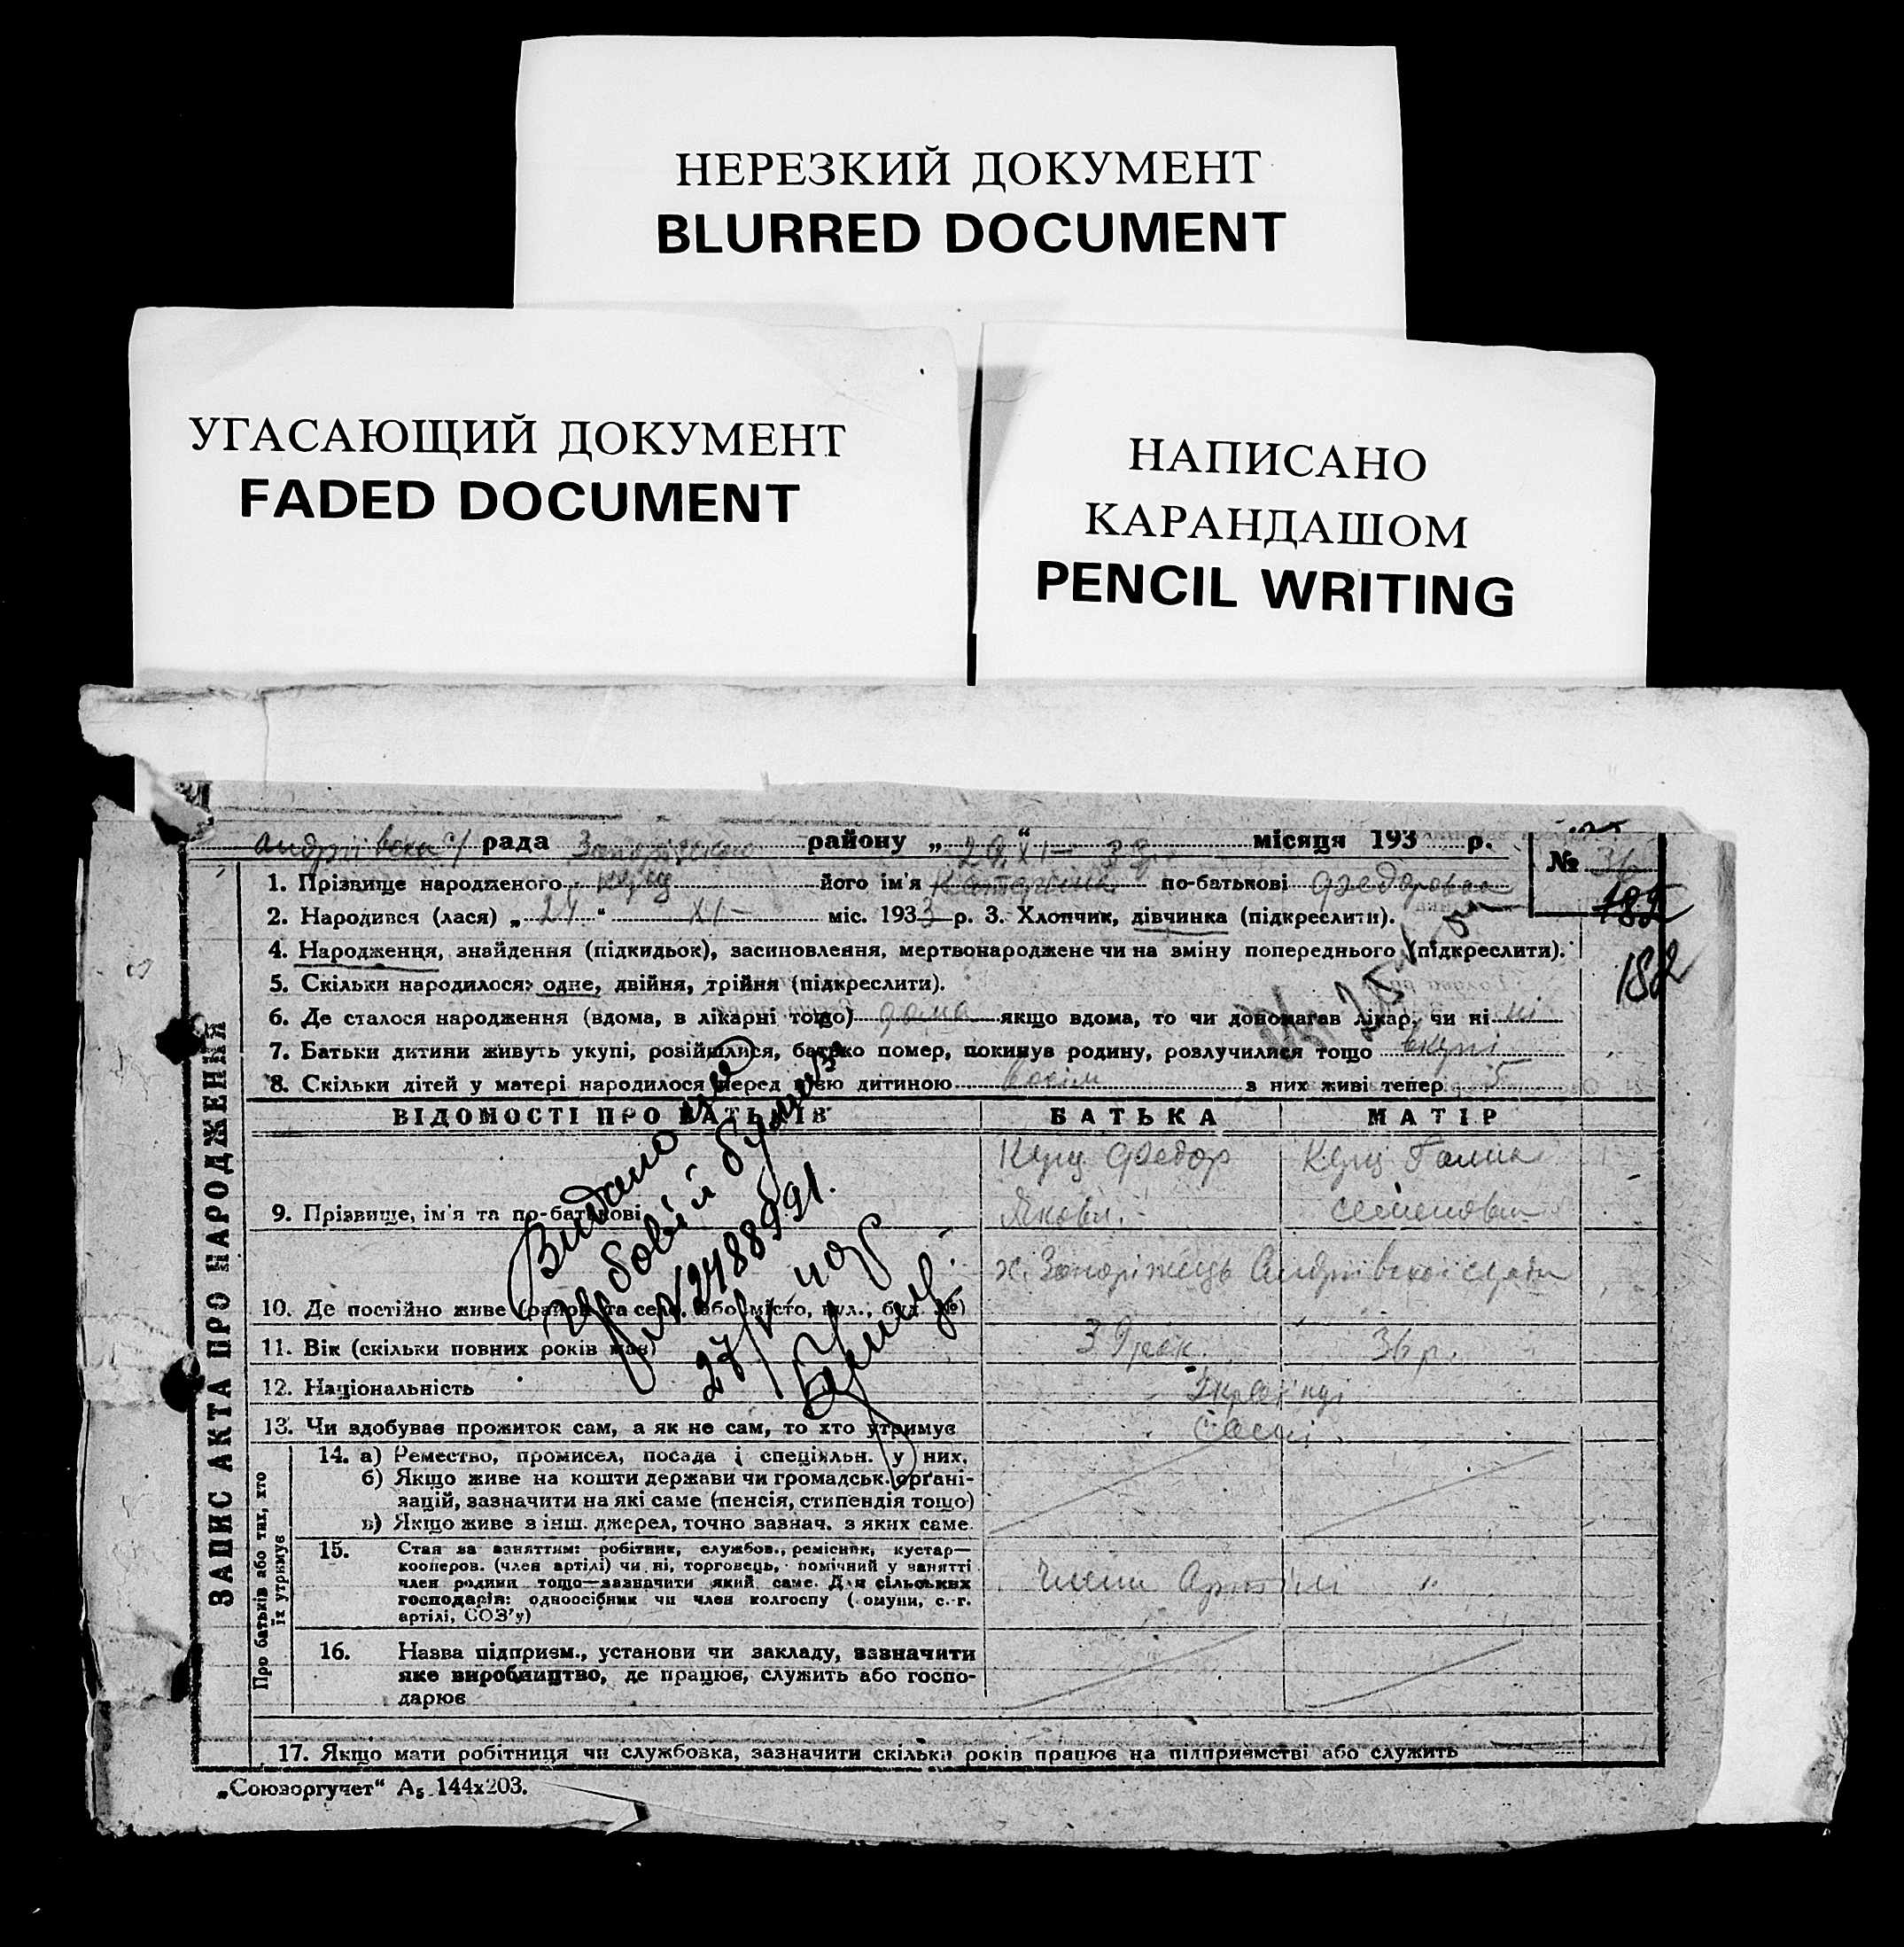 НЕРЕЗКИЙ ДОКУМЕНТ
BLURRED DOCUMENT
УГАСАЮЩИЙ ДОКУМЕНТ
FADED DOCUMENT
НАПИСАНО
КАРАНДАШОМ
PENCIL WRITING
рада району „ “ місяця 193 р.
№ 36
182
182
ЗАПИС АКТА ПРО НАРОДЖЕННЯ
1. Прізвище народженого Куц його ім'я Катерина по-батькові Федоровна
2. Народився (лася) „ 24 “ XI міс. 1933 р. 3. Хлопчик, дівчинка (підкреслити).
4. Народження, знайдення (підкидьок), засиновлення, мертвонароджене чи на зміну попереднього (підкреслити).
5. Скільки народилося: одне, двійня, трійня (підкреслити).
6. Де сталося народження (вдома, в лікарні тощо) дома якщо вдома, то чи допомагав лікар, чи ні ні
7. Батьки дитини живуть укупі, розійшлися, батько помер, покинув родину, розлучилися тощо вкупі
8. Скільки дітей у матері народилося перед цією дитиною вісім з них живі тепер 5
ВІДОМОСТІ ПРО БАТЬКІВ БАТЬКА МАТІР
Куц Федор Куц Галина
9. Прізвище, ім'я та по-батькові Якови. Семеновна
х. Запоріжець Андріївської с/ради
10. Де постійно живе (район та село, або місто, вул., буд. №)
11. Вік (скільки повних років має) 39 рок. 36 р.
12. Національність Українці
13. Чи здобуває прожиток сам, а як не сам, то хто утримує самі
Про батьків або так, хто їх утримує
14. а) Ремество, промисел, посада і спеціяльн. у них.
б) Якщо живе на кошти держави чи громадськ. органі-
зацій, зазначити на які саме (пенсія, стипендія тощо)
в) Якщо живе з інш. джерел, точно зазнач. з яких саме
15. Стан за заняттям: робітник, службов., ремісник, кустар—
кооперов. (член артілі) чи ні, торговець, помічний у занятті
член родини тощо—зазначити який саме. Для сільських
господарів: одноосібник чи член колгоспу (комуни, с.-г.
артілі, СОЗ'у) члени Артілі "
16. Назва підприєм., установи чи закладу, зазначити
яке виробництво, де працює, служить або госпо-
дарює
17. Якщо мати робітниця чи службовка, зазначити скільки років працює на підприємстві або служить
„Союзоргучет“ А₅ 144х203.
Видано